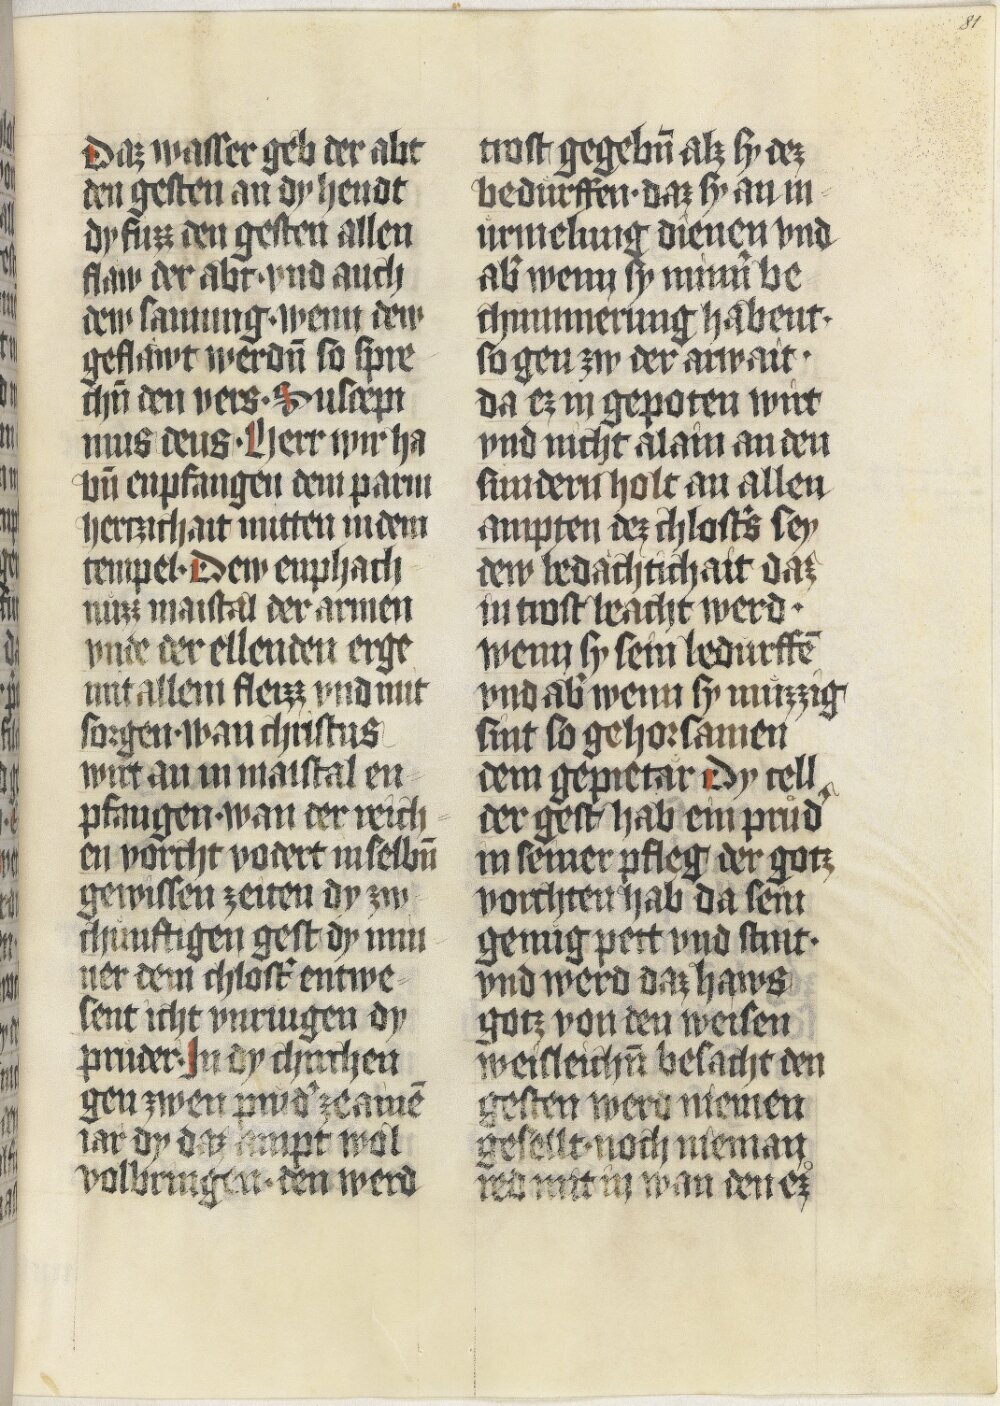 81
Daz wasser geb der abt
den gesten an dy hendt
dy fuzz den gesten allen
flaw der abt · vnd auch
dew samung · wenn dew
geflawt werdn̄ so spre
chn̄ den vers · Suscepi
mus deus · Herr wir ha
bn̄ enpfangen dein parm
hertzichait mitten in dem
tempel · Dew enphach
nuzz maistal der armen
vnde der ellenden erge
mit allem fleizz vnd mit
sorgen · wan christus
wirt an in maistal en
pfangen · wan der reich
en vorcht vodert in selbn̄
gewissen zeiten dy zw
chunftigen gest dy nim
mer dem chlost̓ entwe
sent icht vnruigen dy
pruder · In dy chuchen
gen zwen prud̓ ze ainē
iar dy daz ampt wol
volbringen · den werd
trost gegebn̄ alz sy dez
bedurffen · daz sy an in
urmelung dienen vnd
ab̓ wenn sy minn̓ be
chummerung habent ·
so gen zw der arwait ·
da ez in gepoten wirt
vnd nicht alain an den
sundern holt an allen
ampten dez chlost̓s sey
dew bedachtichait daz
in trost bracht werd ·
wenn sy sein bedurffē
vnd ab̓ wenn sy muzzig
sint so gehorsamen
dem gepietar Dy cell
der gest hab ein prud̓
in seiner pfleg der gotz
vorchten hab da sein
genug pett vnd stint ·
vnd werd daz haws
gotz von den weisen
weisleichn̄ besacht den
gesten werd niemen
gesellt · noch nieman
red mit in wan den ez